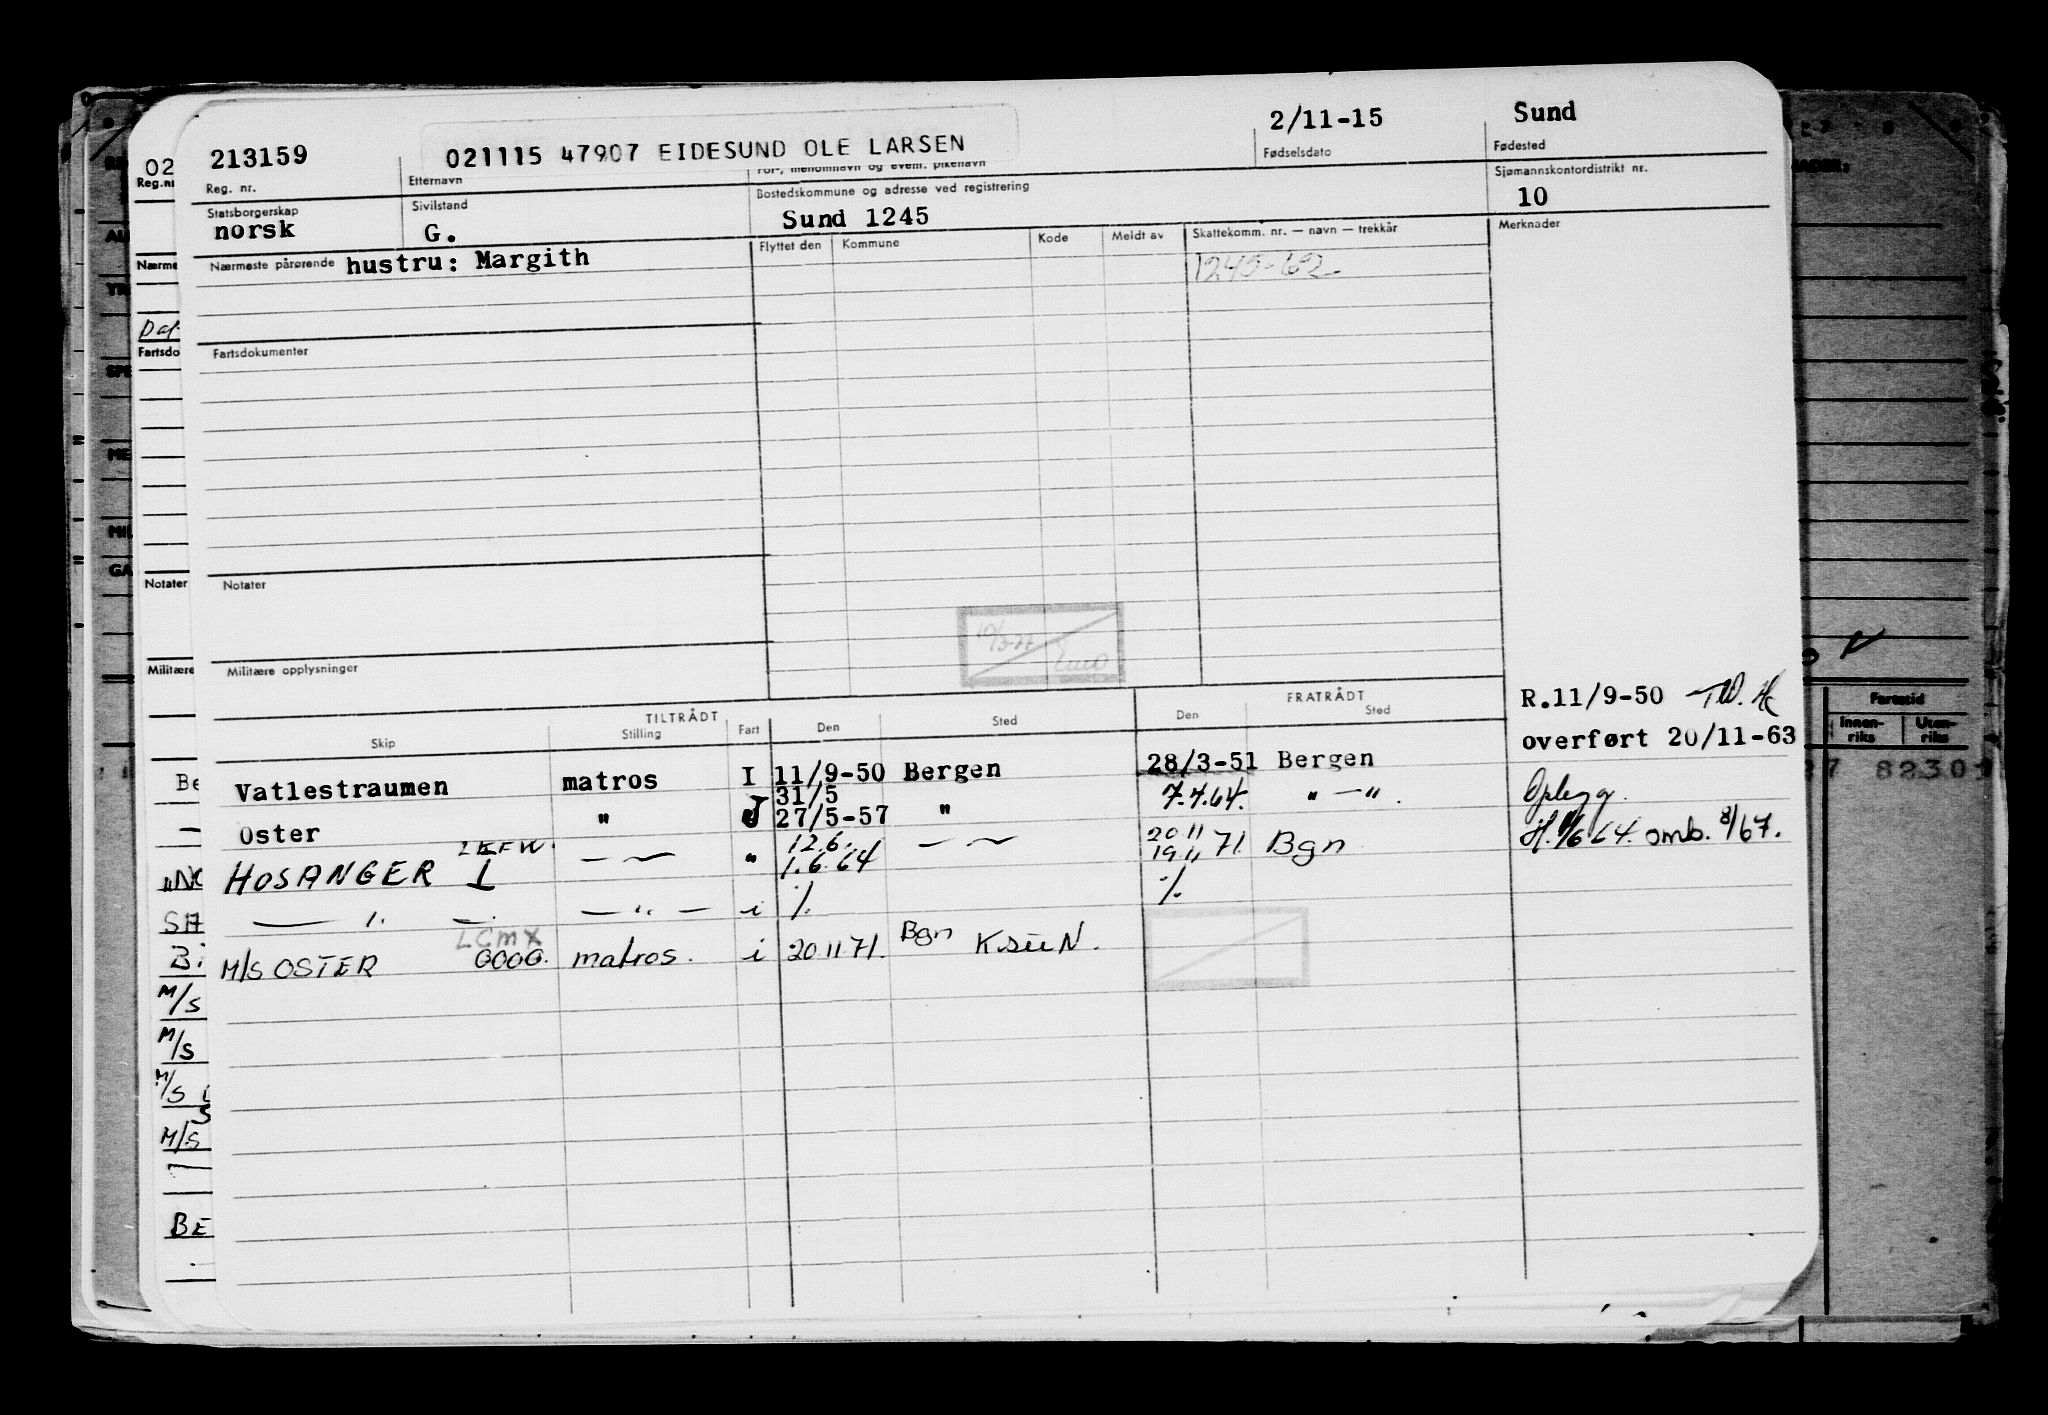 213159
021115 47907 EIDESUND OLE LARSEN
2/11-15
Sund
02
Reg. nr.
Reg. nr.
Etternavn
For-, mellomnavn og event. pikenavn
Fødselsdato
Fødested
Statsborgerskap
norsk
Sivilstand
G.
Bostedskommune og adresse ved registrering
Sund 1245
Sjømannskontordistrikt nr.
10
Nærmeste pårørende hustru: Margith
Flyttet den
Kommune
Kode
Meldt av
Skattekomm. nr. — navn — trekkår
Merknader
1245-62
Fartsdo
Fartsdokumenter
Notater
Notater
Militære
Militære opplysninger
TILTRÅDT
FRATRÅDT
Skip
Stilling
Fart
Den
Sted
Den
Sted
R.11/9-50
overført 20/11-63
Vatlestraumen matros I 11/9-50 Bergen 28/3-51 Bergen
31/5
Oster " 27/5-57 " 7.4.64. " — " .
Opplegg.
12.6.
20 11
HOSANGER I — " 1.6.64 — 19 11 71 Bgn
1/6 64. omb. 8/67.
— " — — " — i % %
LCMX
M/S OSTER GOOG. matros. i 20 11 71. Bgn
M/S
M/S
M/S
M/S
BE
Fartstid
Innen-
riks
Uten-
riks
8230